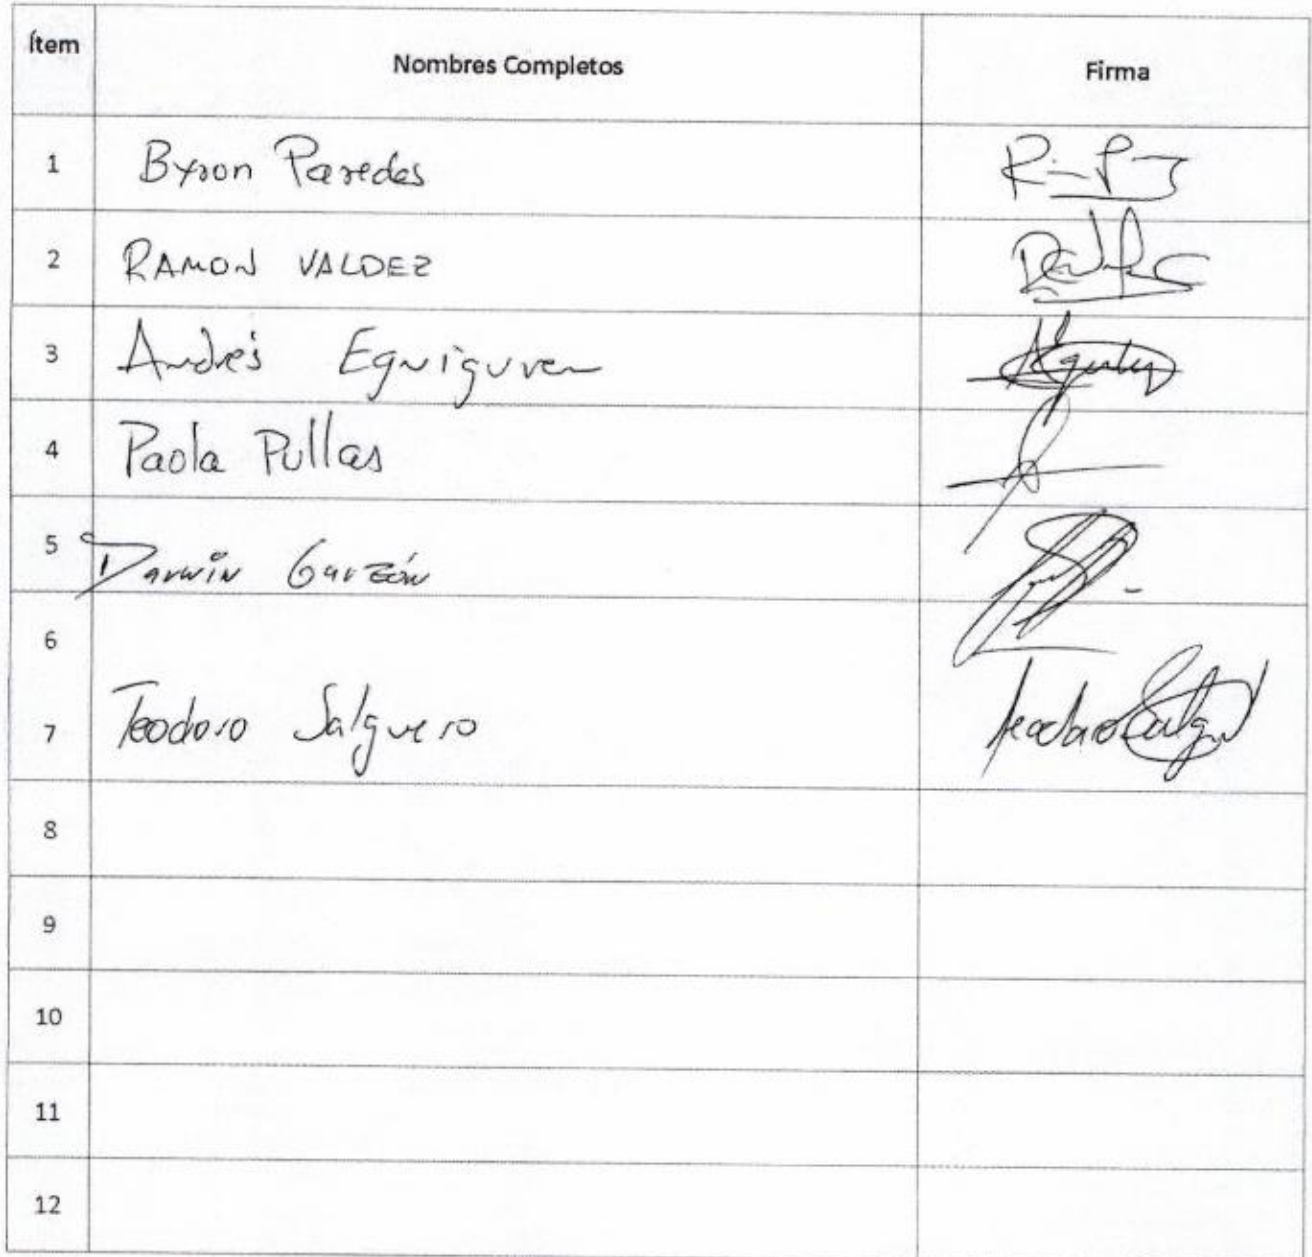 Ítem Nombres Completos Firma
1 Byron Paredes
2 RAMON VALDEZ
3 Andrés Eguiguren
4 Paola Pullas
5 Darwin Garzón
6
7 Teodoro Salguero Teodoro Salgu
8
9
10
11
12